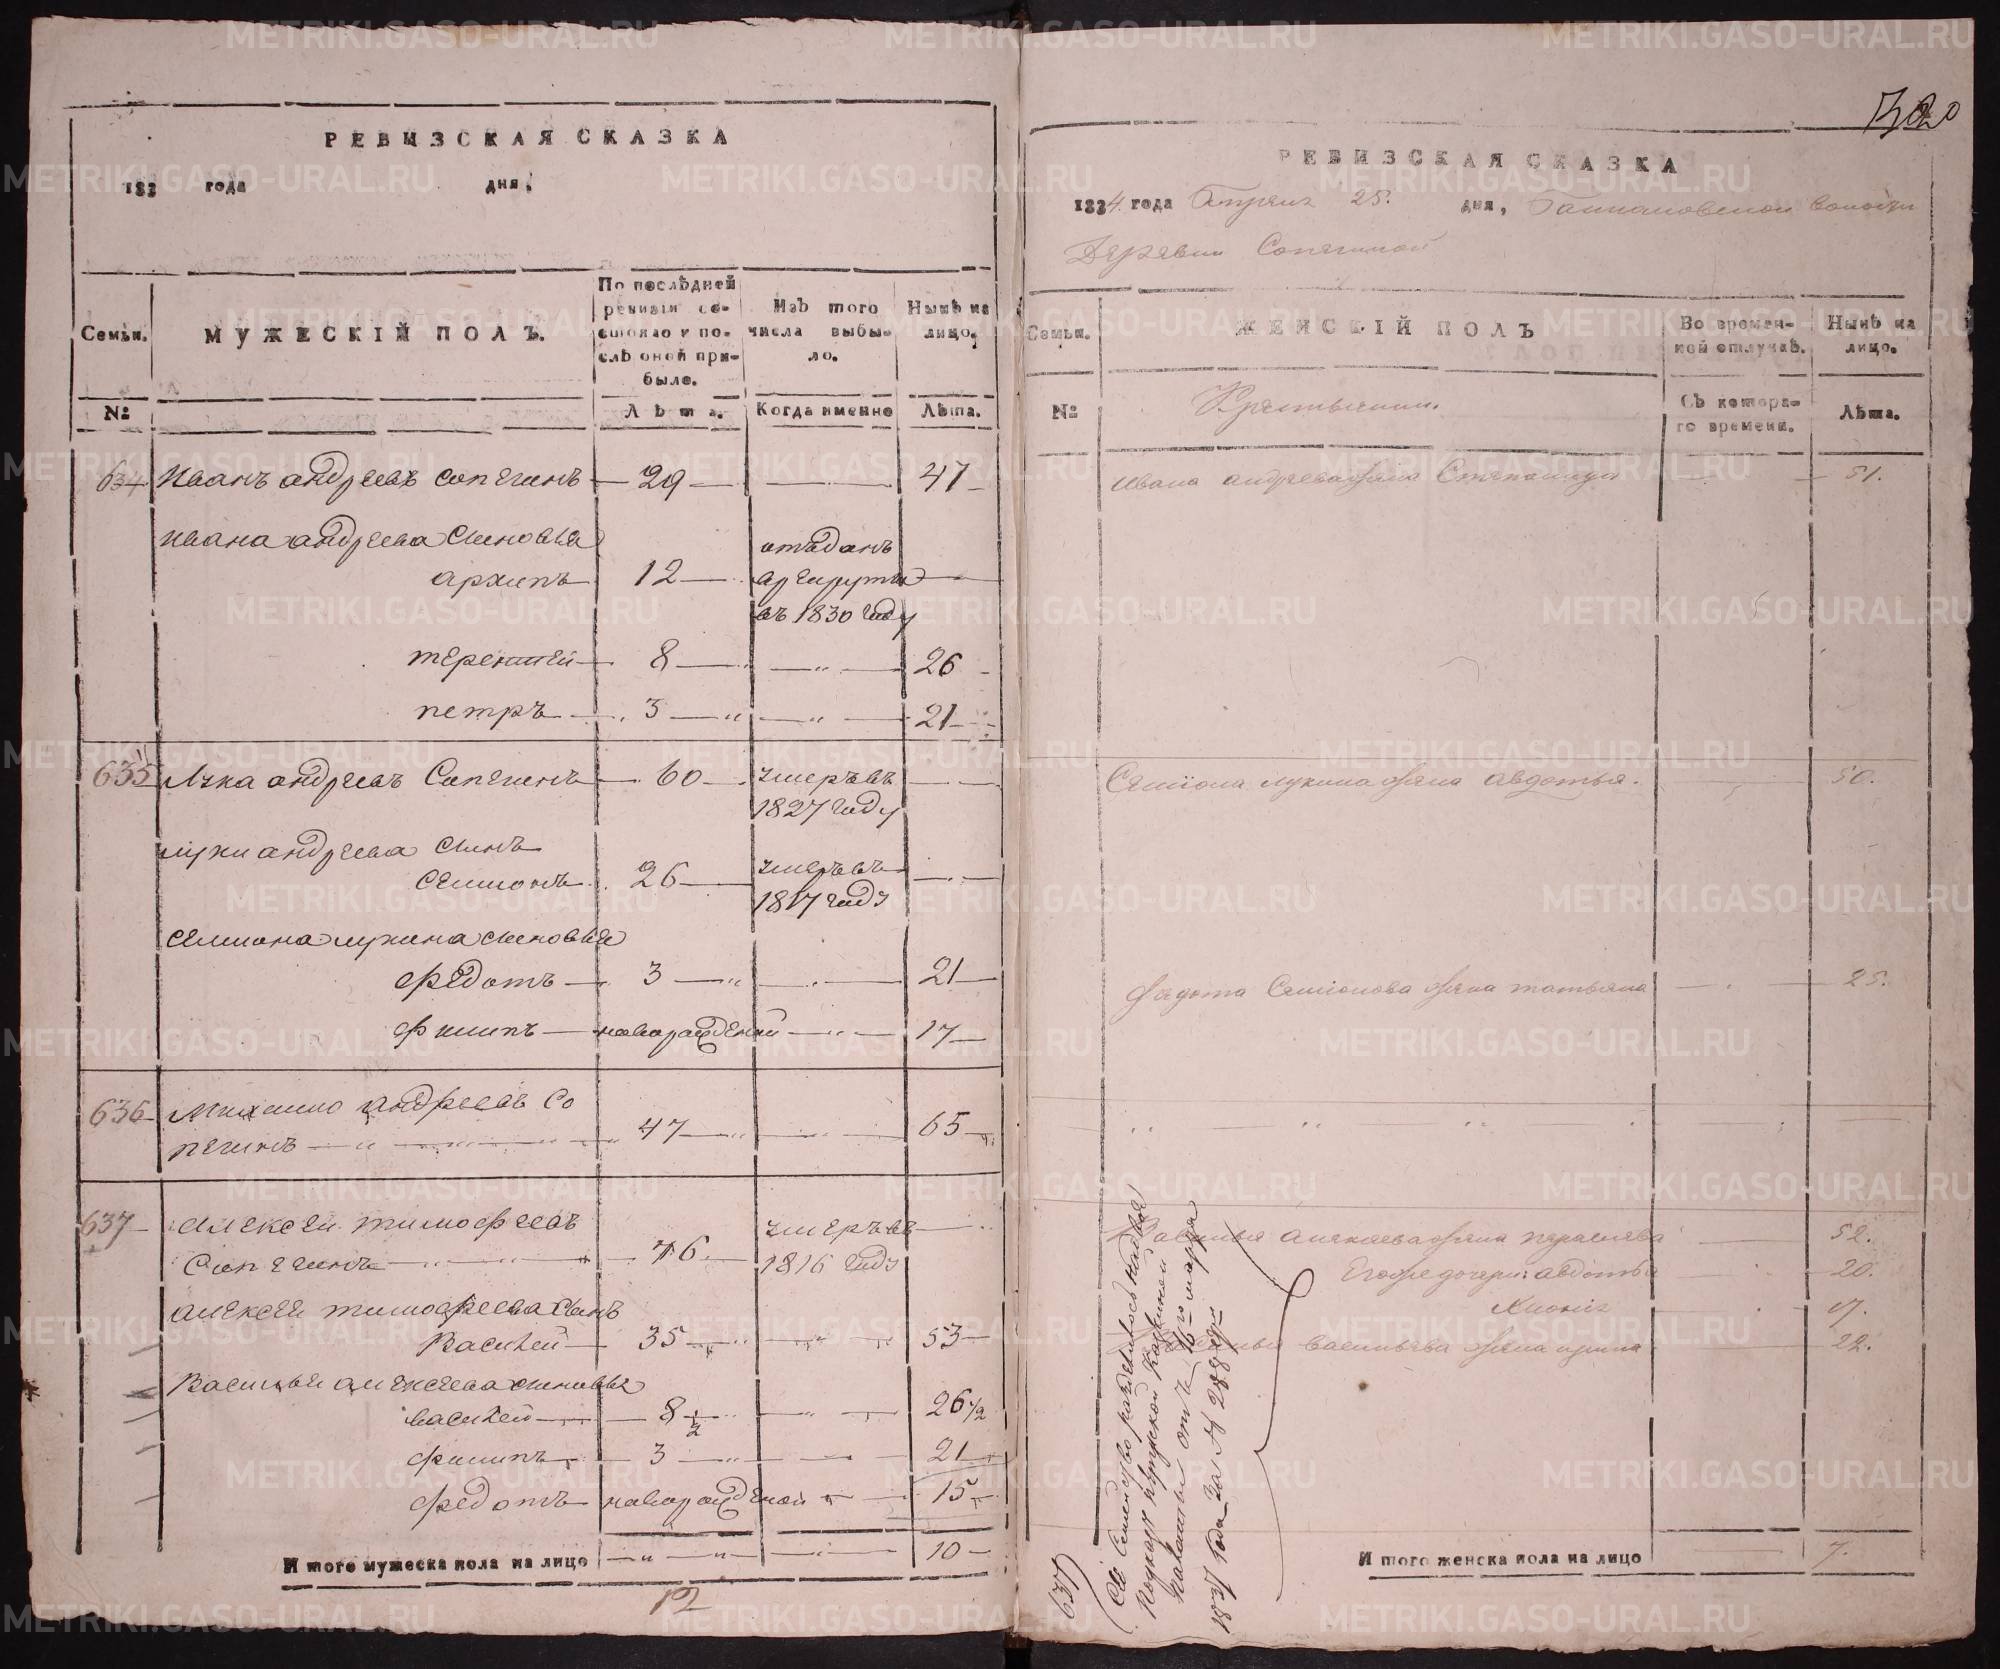 РЕВИЗСКАЯ СКАЗКА
183 года дня,
Семьи.
МУЖЕСКІЙ ПОЛЪ.
По послѣдней
ревизіи со-
стояло и по-
слѣ оной при-
было.
Изъ того
числа выбы-
ло.
Нынѣ на
лицо.
№
Лѣта.
Когда именно
Лѣта.
634 Иванъ андреевъ сопегинъ 29 47
Ивана андреева сыновья
архипъ 12 отъданъ
в рекруты
въ 1830 году
терентей 8 26
петръ 3 21
635 Лука андреевъ Сопегинъ 60 умеръ въ
1827 году
луки андреева сынъ
семионъ 26 умеръ въ
1817 году
семиона лукина сыновья
федотъ 3 21
филипъ новорожденой 17
636 Михаило андреевъ Со
пегинъ 47 65
637 алексеи тимофеевъ умеръ въ
Сопегинъ 76 1816 году
алексеи тимофеева сынъ
Василей 35 53
Василья алексеева сыновья
василей 8 1/2 26 1/2
филипъ 3 21
федотъ новорожденой 15
И того мужеска пола на лицо 10
12
РЕВИЗСКАЯ СКАЗКА
1834 года Апреля 25. дня, волости
Деревни Сопегиной
Семьи.
ЖЕНСКІЙ ПОЛЪ
Во времен-
ной отлучкѣ.
Нынѣ на
лицо.
№
Крестьянин.
Съ котора-
го времени.
Лѣта.
Ивана андреева жена Степанида 51.
Семиона лукина жена авдотья. 50.
Федота Семионова жена татьяна 25.
Василья алексеева жена 52.
Его же дочери: авдотья 20.
17.
Василья васильева жена ирина 22.
637
Сіе Семейство разделилось надвое
По указу Пермской Казенной
Палаты отъ 16го марта
1837 года За №
И того женска пола на лицо 7.